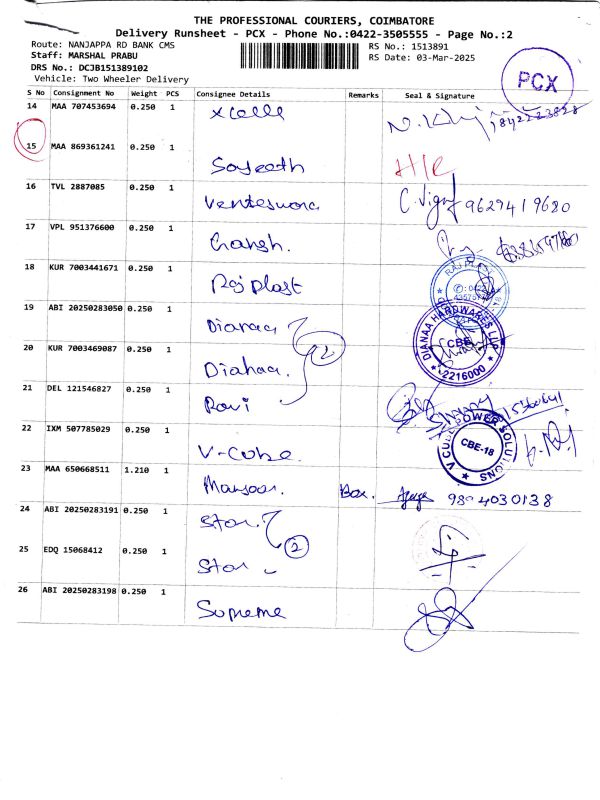 THE PROFESSIONAL COURIERS, COIMBATORE
Delivery Runsheet - PCX - Phone No.:0422-3505555 - Page No.:2
Route: NANJAPPA RD BANK CMS RS No.: 1513891
Staff: MARSHAL PRABU RS Date: 03-Mar-2025
DRS No.: DCJB151389102
Vehicle: Two Wheeler Delivery
PCX
S No Consignment No Weight PCS Consignee Details Remarks Seal & Signature
14 MAA 707453694 0.250 1 Xcelle
15 MAA 869361241 0.250 1 Sajeeth H/C
16 TVL 2887085 0.250 1 Venteswora C. Vign 9629419680
17 VPL 951376600 0.250 1 Ganesh.
18 KUR 7003441671 0.250 1 Raj plast
RAJ PLAST
19 ABI 20250283050 0.250 1 Dianaa
DIANAA HARDWARES LLP CBE 2216000
20 KUR 7003469087 0.250 1 Dianaa. 2
21 DEL 121546827 0.250 1 Ravi
22 IXM 507785029 0.250 1 V-Cube.
V CUBE POWER SOLUTIONS CBE-18
23 MAA 650668511 1.210 1 Mansoor. Box. 9894030138
24 ABI 20250283191 0.250 1 Star
2
25 EDQ 15068412 0.250 1 Star
26 ABI 20250283198 0.250 1 Supreme